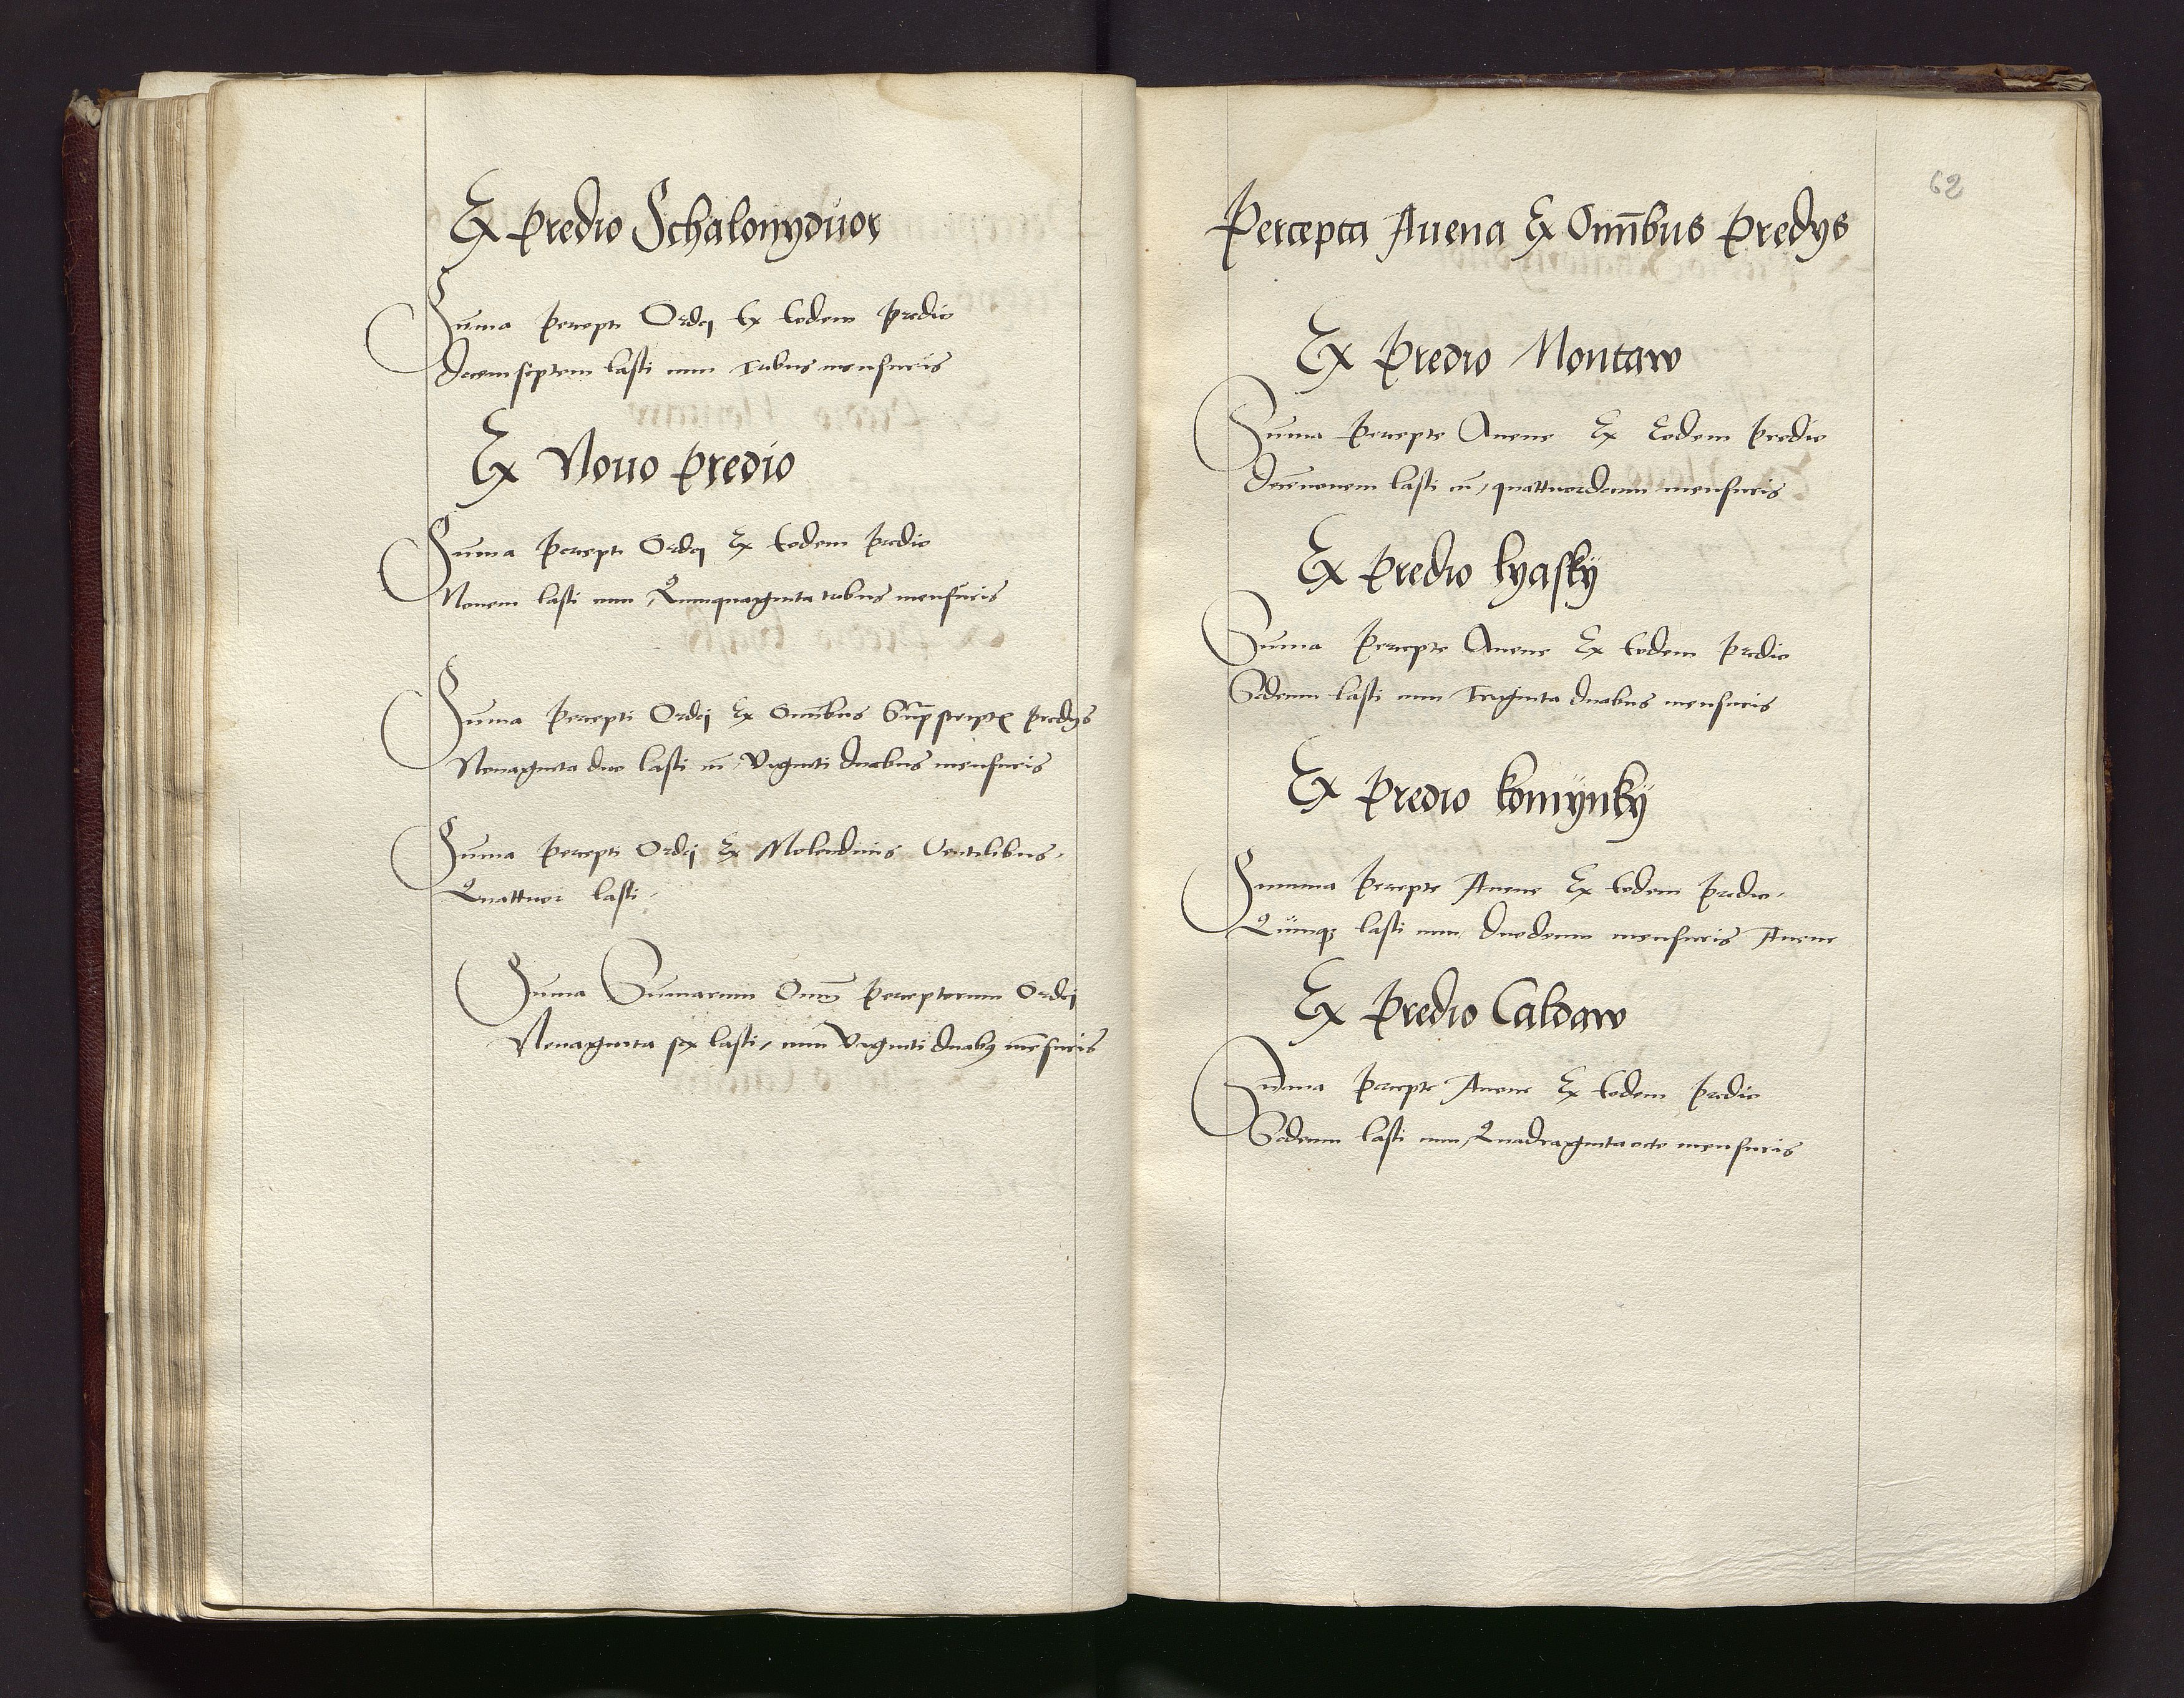 Ex predio Schalonyduor
Suma percepti Ordej Ex Eodem predio
Decemseptem lasti cum Tribus mensuris
Ex Nouo predio
Suma percepti Ordej Ex Eodem predio
Nouem lasti cum Quinquaginta tribus mensuris
Suma percepti Ordej Ex Om̄ibus predys
Nonaginta duo lasti cū Viginti duabus mensuris
Suma percepti Ordej Ex Molendinis Ventilibus
Quattuor lasti
Suma Sumarum Omm̄ perceptorum Ordej
Nonaginta sex lasti, cum Viginti duabꝫ mēsuris
62
Percepta Auena Ex Om̄ibus predys
Ex predio Montaw
Suma percepte Auene Ex Eodem predio
Decēnouem lasti cū, quattuordecim mensuris
Ex predio lyasky
Suma percepte Auene Ex Eodem predio
Sedecim lasti cum Triginta duabus mensuris
Ex predio komÿnkÿ
Summa percepte Auene Ex Eodem predio
Quinqꝫ lasti cum duodecim mensuris Auene
Ex predio Caldaw
Suma percepte Auene Ex Eodem predio
Sedecim lasti cum Quadragintaocto mensuris